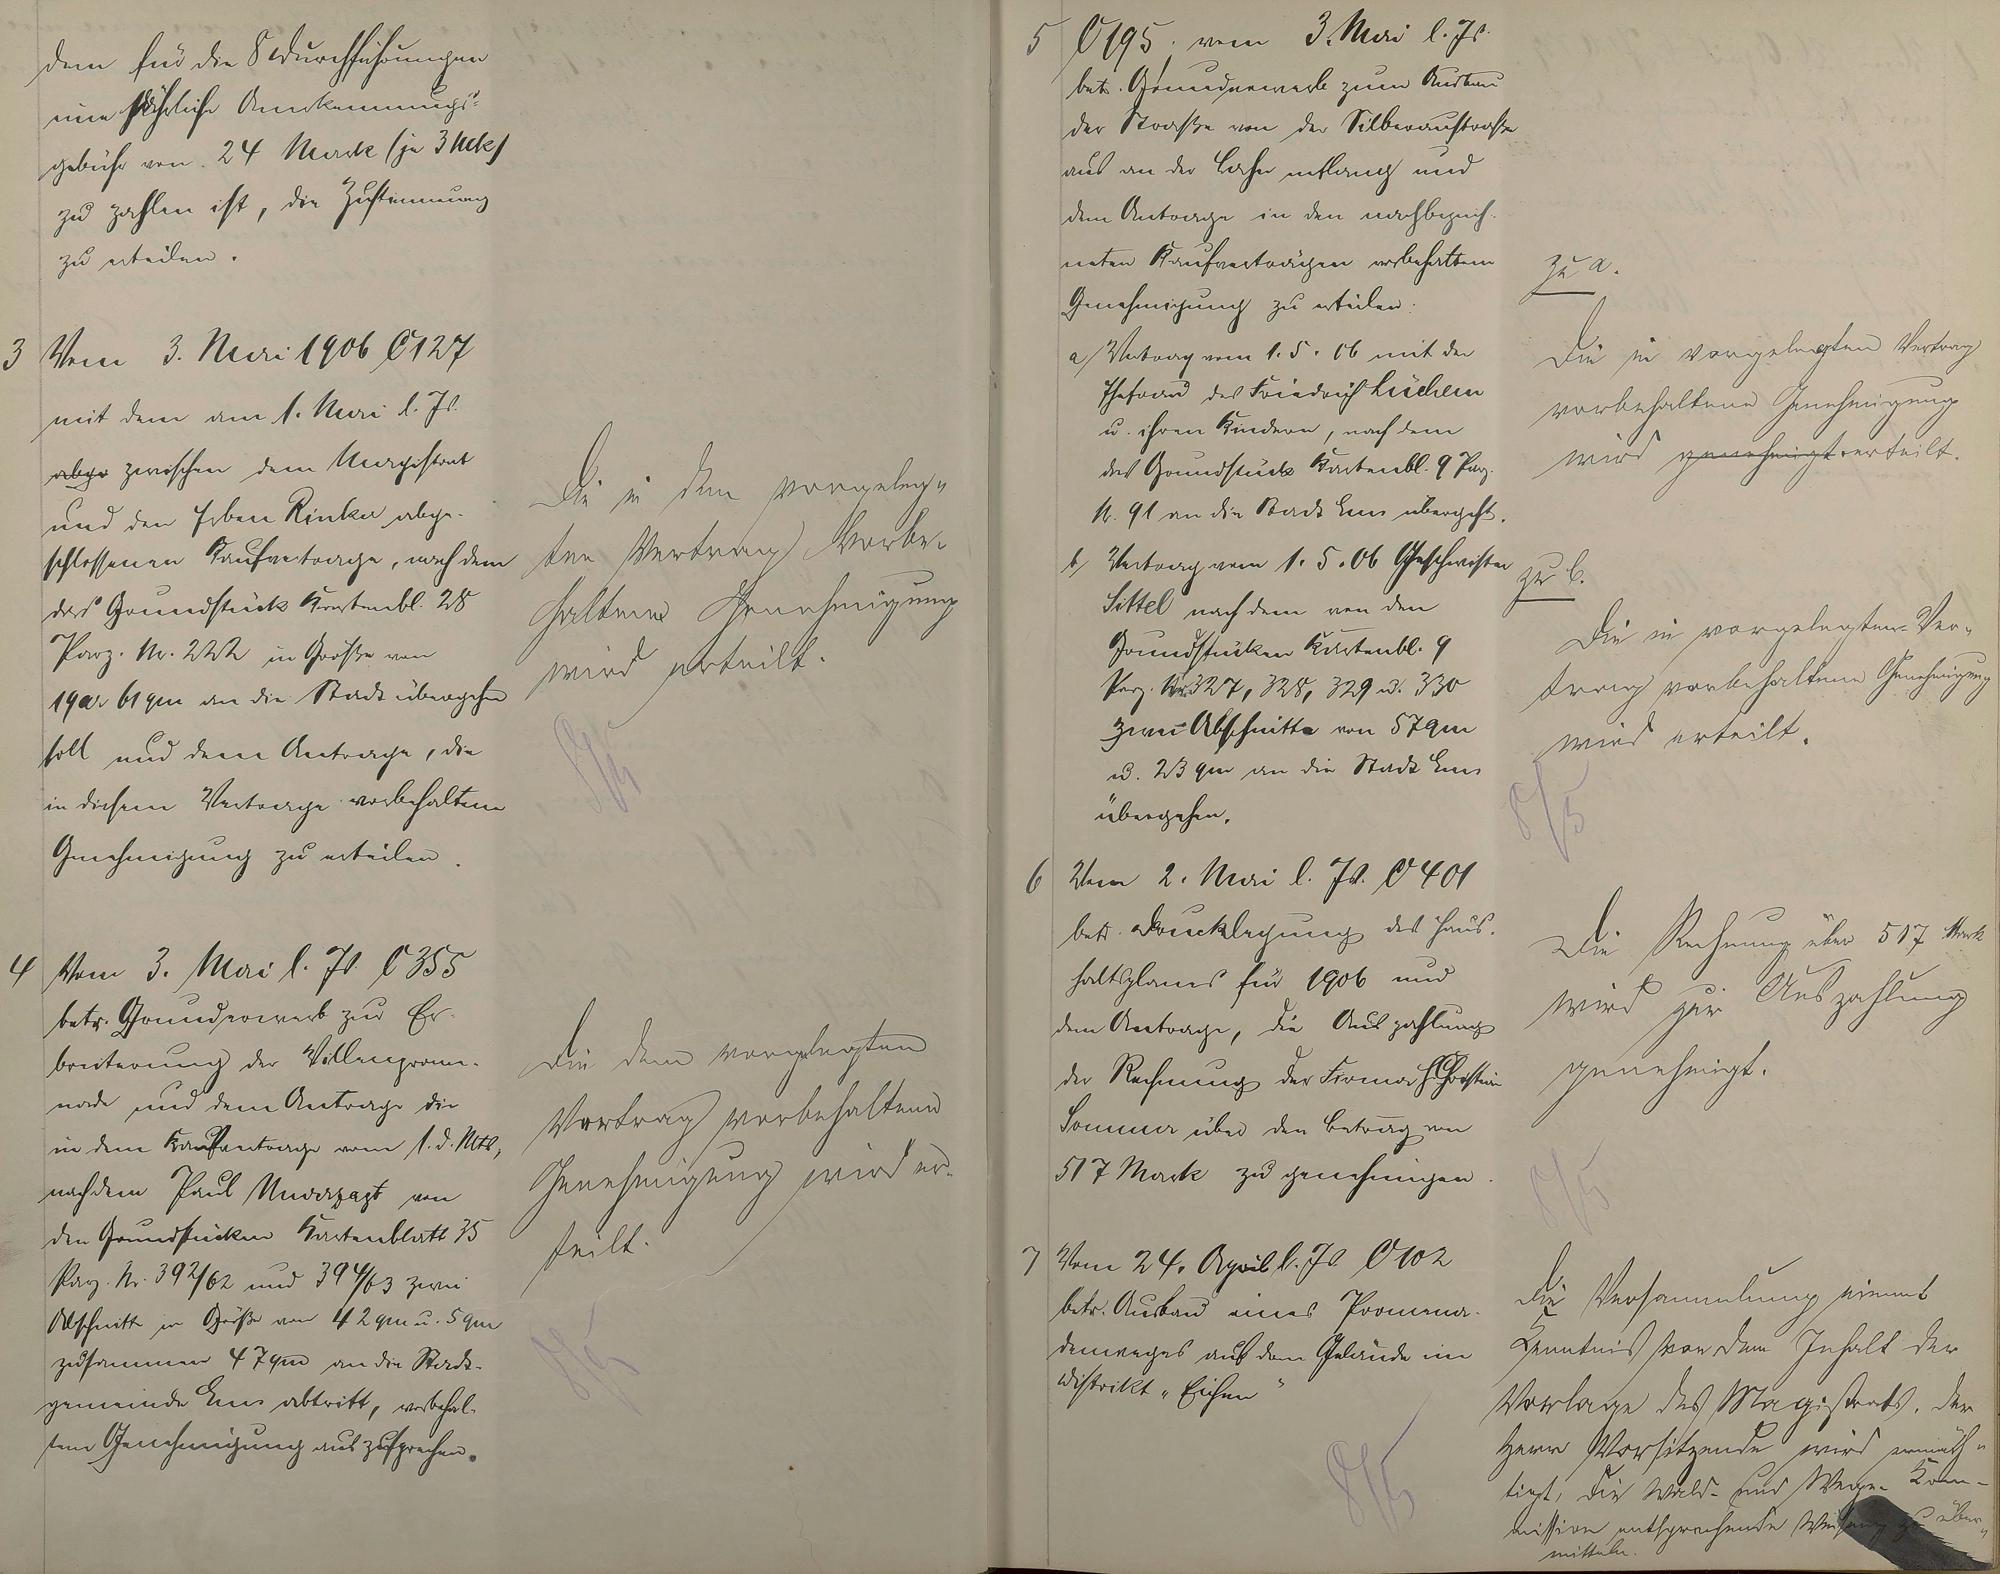 dem für die 8 Durchführungen
eine jährliche Anerkennungs-
gebühr von 24 Mark (je 3 Mk)
zu zahlen ist, die Zustimmung
zu erteilen.
3 Vom 3. Mai 1906 C 127
mit dem am 1. Mai l. Js.
abge zwischen dem Magistrat
und den Erben Rinker abge-
schlossenen Kaufvertrage, nach dem
das Grundstück Kartenbl. 28
Parz. Nr. 222 in Größe von
19 ar 61 qm an die Stadt übergehen
soll und dem Antrage, die
in diesem Vertrage vorbehaltene
Genehmigung zu erteilen.
Die in dem vorgeleg-
ten Vertrag vorbe-
haltene Genehmigung
wird erteilt.
8/5
4 Vom 3. Mai l. Js. C 355
betr. Grunderwerb zur Er-
breiterung der Villenprome-
nade und dem Antrage die
in dem Kaufvertrage vom 1. d. Mts.,
nach dem Paul Unverzagt von
den Grundstücken Kartenblatt 35
Parz. Nr. 392/62 und 394/63 zwei
Abschnitte in Größe von 42 qm u. 5 qm
zusammen 47 qm an die Stadt-
gemeinde Ems abtritt, vorbehal-
tene Genehmigung auszusprechen.
Die dem vorgelegten
Vertrag vorbehaltene
Genehmigung wird er-
teilt.
8/5
5 C 195. vom 3. Mai l. Js.
betr. Grunderwerb zum Ausbau
der Straße von der Silberaustraße
aus an der Lahn entlang und
dem Antrage in den nachbezeich-
neten Kaufverträgen vorbehaltene
Genehmigung zu erteilen:
a/ Vertrag vom 1. 5. 06 mit der
Ehefrau des Friedrich Lüchem
u. ihren Kindern, nach dem
das Grundstück Kartenbl. 9 Parz.
Nr. 91 an die Stadt Ems übergeht.
b/ Vertrag vom 1. 5. 06 Geschwister
Sittel nach dem von den
Grundstücken Kartenbl. 9
Parz. Nr 327, 328, 329 u. 330
zwei Abschnitte von 57 qm
u. 23 qm an die Stadt Ems
übergehen.
zu a.
Die in vorgelegten Vertrag
vorbehaltene Genehmigung
wird genehmigt erteilt.
zu b.
Die in vorgelegten Ver-
trag vorbehaltene Genehmigung
wird erteilt.
8/5
6 Vom 2. Mai l. Js. C 401
betr. Drucklegung des Haus-
haltsplanes für 1906 und
dem Antrage, die Auszahlung
der Rechnung der Firma H. Christian
Sommer über den Betrag von
517 Mark zu genehmigen.
Die Rechnung über 517 Mark
wird zur Auszahlung
genehmigt.
8/5
7 Vom 24. April l. Js C 102
betr. Ausbau eines Promena-
denweges auf dem Gelände im
Distrikt „Eichen"
8/5
Die Versammlung nimmt
Kenntnis von dem Inhalt der
Vorlage des Magistrats. Der
Herr Vorsitzende wird ermäch-
tigt, die Wald- und Wege-Kom-
mission entsprechende Weisung zu über-
mitteln.